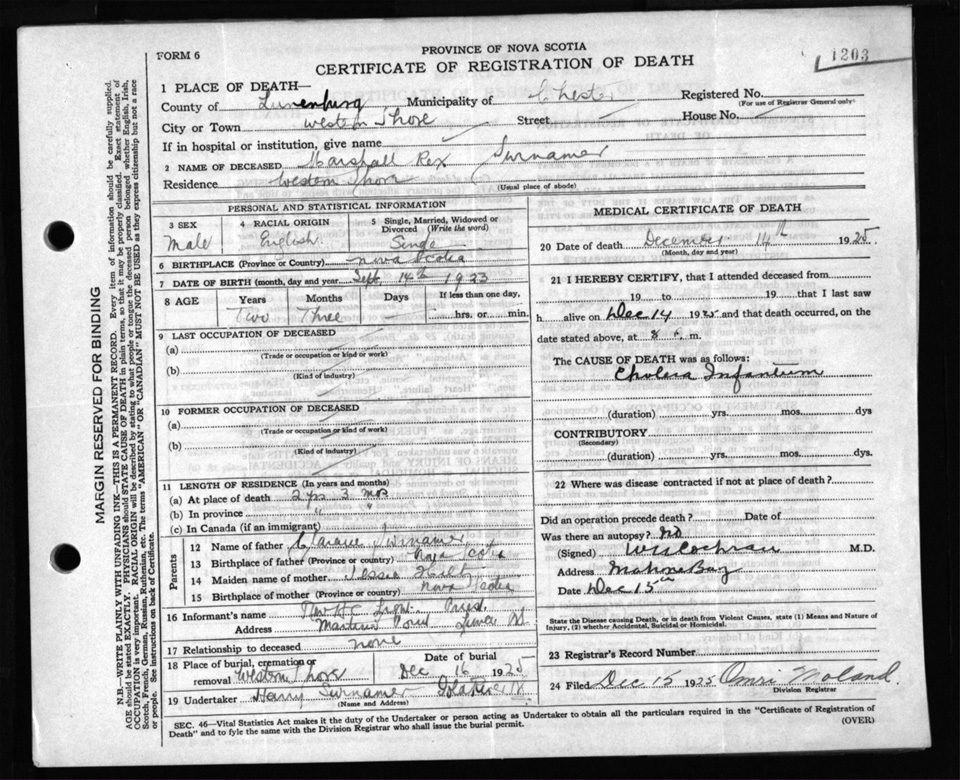 1203
FORM 6
PROVINCE OF NOVA SCOTIA
CERTIFICATE OF REGISTRATION OF DEATH
MARGIN RESERVED FOR BINDING
N.B.—WRITE PLAINLY WITH UNFADING INK—THIS IS A PERMANENT RECORD. Every item of information should be carefully supplied.
AGE should be stated EXACTLY. PHYSICIANS should STATE CAUSE OF DEATH in plain terms, so that it may be properly classified. Exact statement of
OCCUPATION is very important. RACIAL ORIGIN will be described by stating to what people or tongue the deceased person belonged whether English, Irish,
Scotch, French, German, Russian, Ruthenian, etc. The terms "AMERICAN" or "CANADIAN" MUST NOT BE USED as they express citizenship but not a race
or people. See instructions on back of Certificate.
1 PLACE OF DEATH—
County of Lunenburg Municipality of Chester Registered No.
(For use of Registrar General only)
City or Town Western Shore Street House No.
If in hospital or institution, give name
2 NAME OF DECEASED Marshall Rex Swinamer
Residence Western Shore
(Usual place of abode)
PERSONAL AND STATISTICAL INFORMATION
3 SEX 4 RACIAL ORIGIN 5 Single, Married, Widowed or
Divorced (Write the word)
Male English Single
6 BIRTHPLACE (Province or Country) Nova Scotia
7 DATE OF BIRTH (month, day and year) Sept. 14th 1923
8 AGE Years Months Days If less than one day,
Two Three hrs. or min.
9 LAST OCCUPATION OF DECEASED
(a)
(Trade or occupation or kind of work)
(b)
(Kind of industry)
10 FORMER OCCUPATION OF DECEASED
(a)
(Trade or occupation or kind of work)
(b)
(Kind of industry)
11 LENGTH OF RESIDENCE (In years and months)
(a) At place of death 2 yrs 3 mos
(b) In province " "
(c) In Canada (if an immigrant)
Parents
12 Name of father Clarance Swinamer
13 Birthplace of father (Province or country) Nova Scotia
14 Maiden name of mother Jessie
15 Birthplace of mother Nova Scotia
16 Informant's name
Address Martins
17 Relationship to deceased none
18 Place of burial, cremation or Date of burial
removal Western Shore Dec 16 1925
19 Undertaker Harry Swinamer
(Name and Address)
MEDICAL CERTIFICATE OF DEATH
20 Date of death December 14th 1925
(Month, day and year)
21 I HEREBY CERTIFY, that I attended deceased from
19 to 19 that I last saw
h alive on Dec 14 1925 and that death occurred, on
date stated above, at 8 m.
The CAUSE OF DEATH was as follows:
Cholera Infantum
(duration) yrs. mos. dys
CONTRIBUTORY
(Secondary)
(duration) yrs. mos. dys.
22 Where was disease contracted if not at place of death?
Did an operation precede death? Date of
Was there an autopsy? no
(Signed) Cochran M.D.
Address Mahone Bay
Date Dec 15th
State the Disease causing Death, or in death from Violent Causes, state (1) Means and Nature of
Injury, (2) whether Accidental, Suicidal or Homicidal.
23 Registrar's Record Number
24 Filed Dec 15 1925 Omri Noland
Division Registrar
SEC. 46—Vital Statistics Act makes it the duty of the Undertaker or person acting as Undertaker to obtain all the particulars required in the "Certificate of Registration of
Death" and to fyle the same with the Division Registrar who shall issue the burial permit. (OVER)